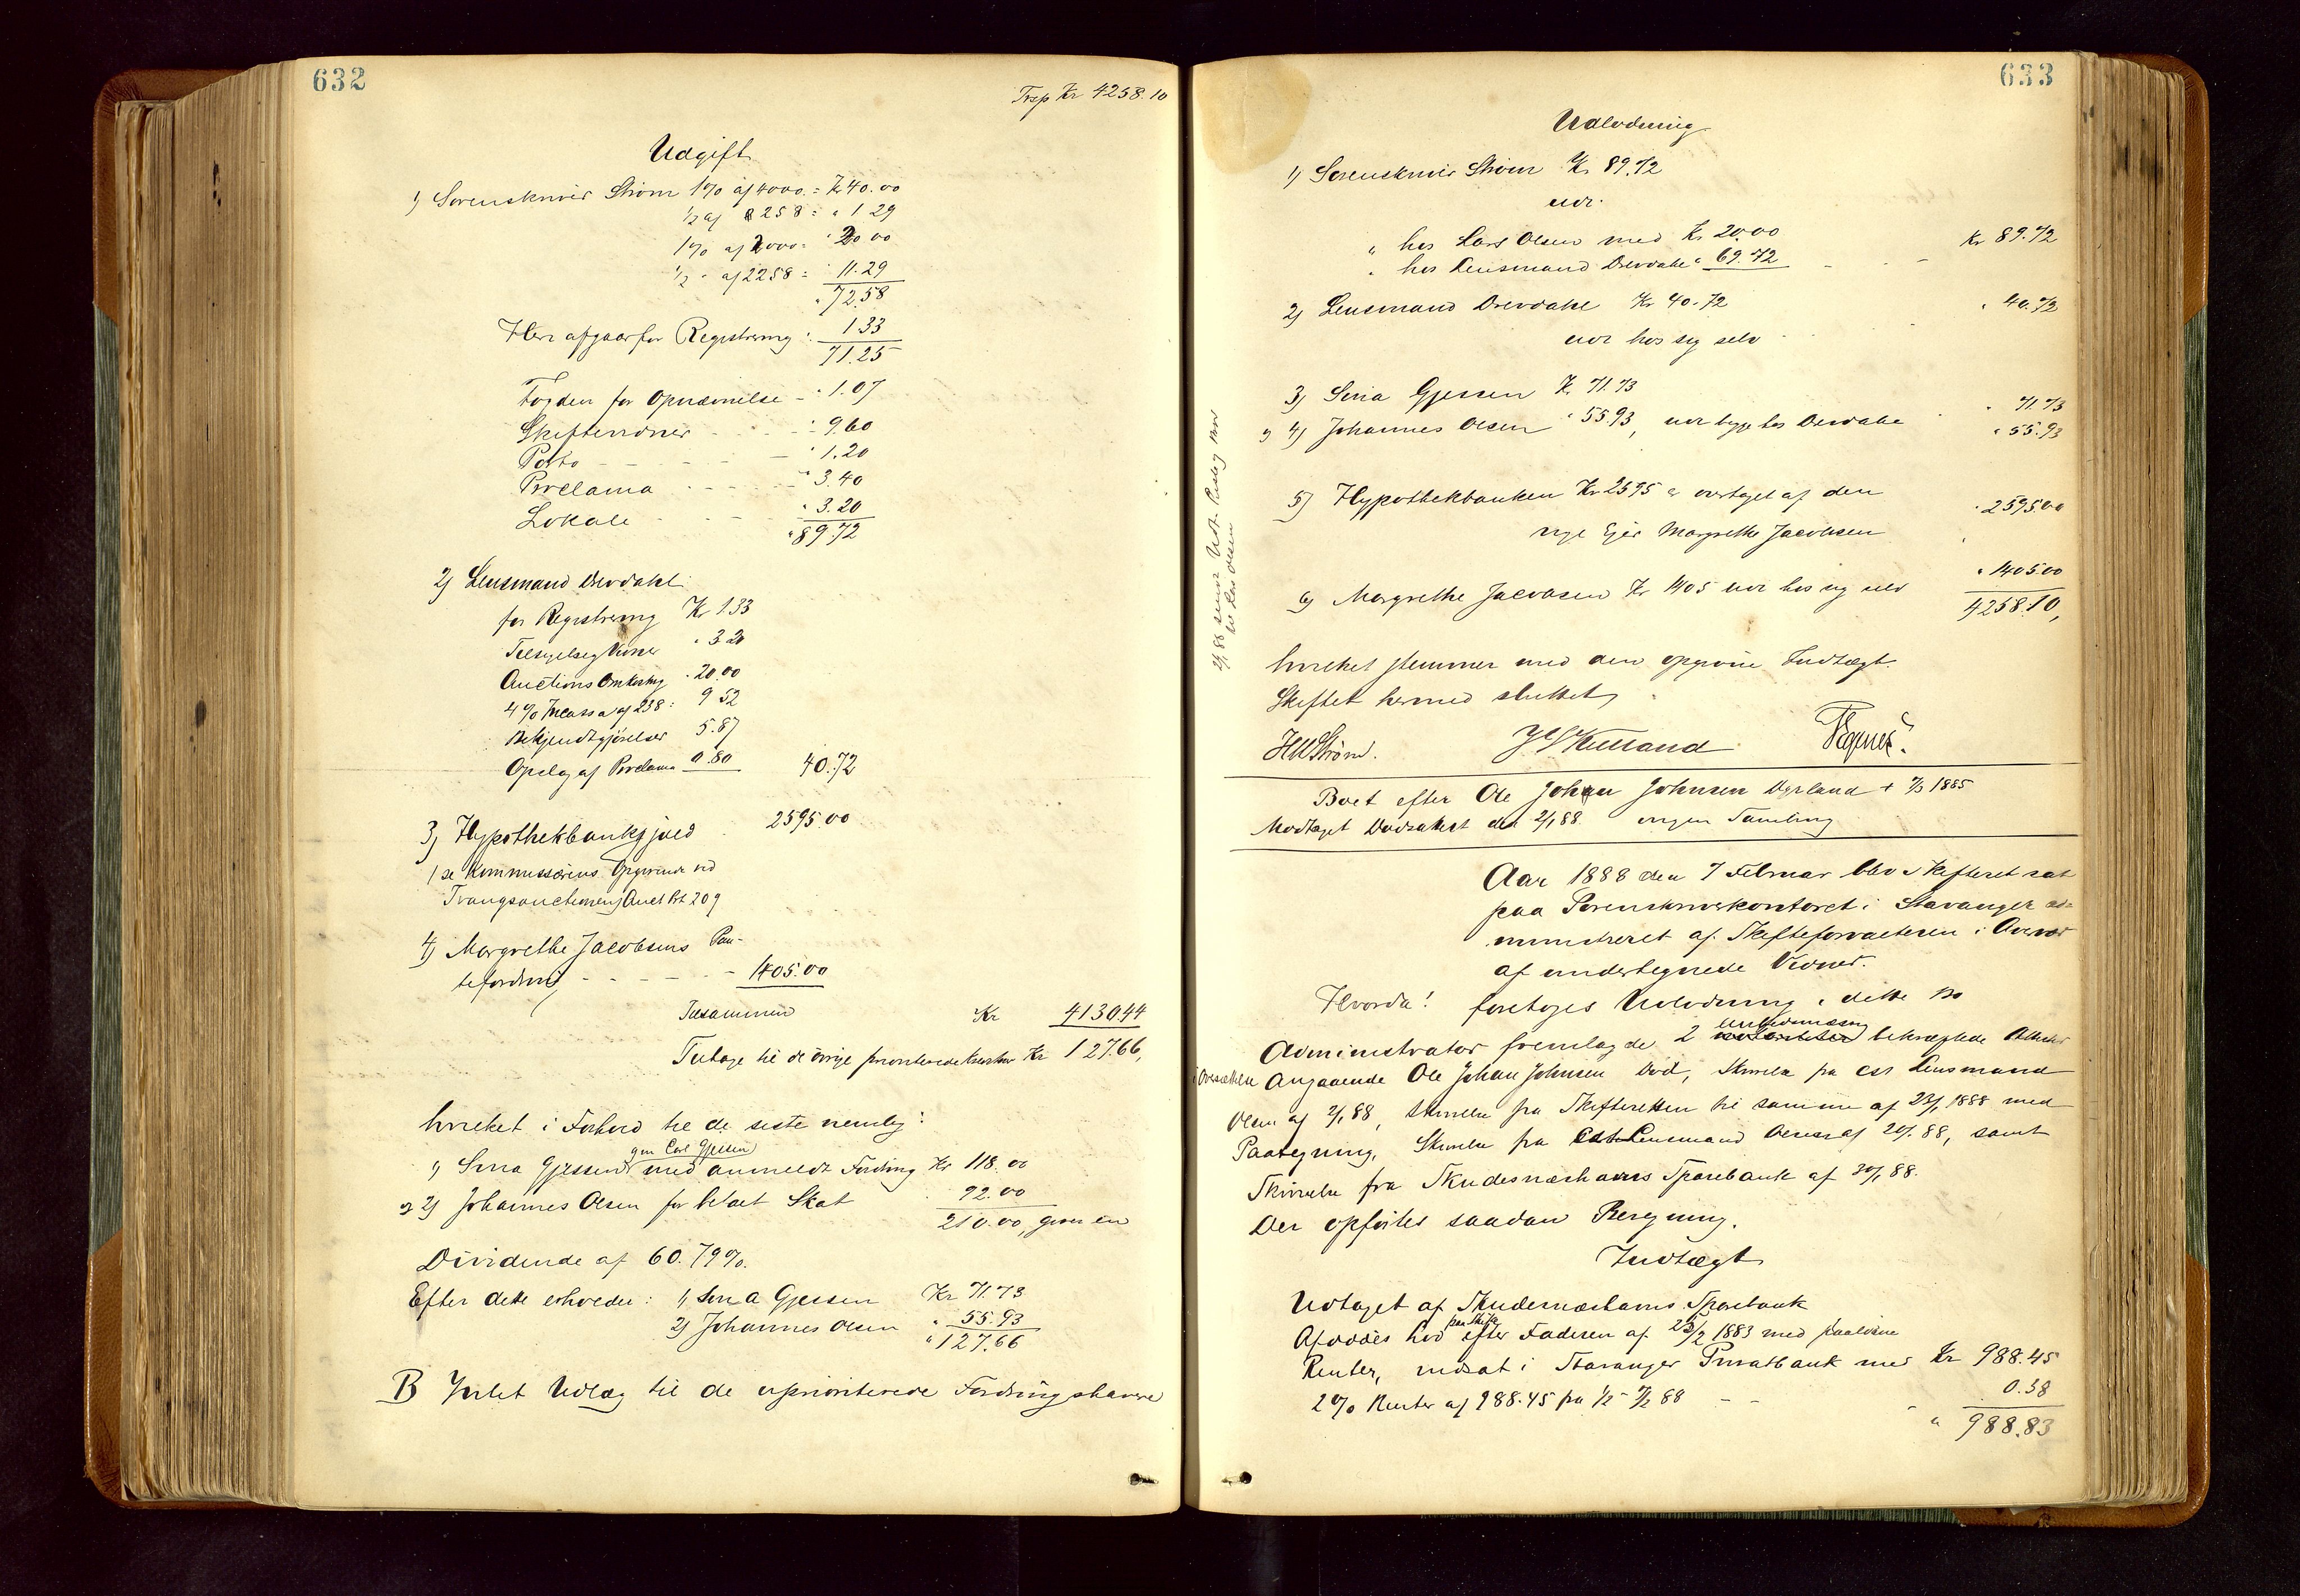 632
Trsp Kr 4258.10
Udgift
1) Sorenskriver Strøm 1% af 4000 = Kr 40.00
½ af 258 = " 1 29
1% af 2000 = " 20 00
½ " af 2258 = " 11.29
" 72.58
Her afgaar for Registrering : 1 33
71.25
Fogden for Opnævnelse - " 1.07
Skiftevidner - - - " 9.60
Porto - - - - " 1.20
Proclama - - - " 3.40
Lokale - - - " 3.20
" 89.72
2) Lensmand Drevdahl
for Registrering Kr 1.33
Tilsigelse Vidner " 3 20
Auctions Omkostng " 20.00
4% Incasso af 238 : 9 52
Bekjendtgjørelser 5.87
Opslag af Proclama 0.80 40.72
3) Hypothekbankgjæld 2595.00
1 se Kommissærens Opgjørelse ved
Tvangsauctionen Auct Prt 209
4) Margrethe Jacobsens Pan-
tefordring - - - - 1405.00
Tilsammen Kr 4130.44
Tilbage til de øvrige prioriterede Kreditorer Kr 127.66,
hvilket i Forhold til de sidste nemlig:
gm Carl Gjessen
1) Sina Gjessen med anmeldt Fordring Kr 118.00
og 2) Johannes Olsen for betalt Skat 92.00
210.00, giver en
Dividende af 60.79%.
Efter dette erholder: 1) Sina Gjessen Kr 71.73
2) Johannes Olsen " 55.93
" 127.66
B Intet Udlæg til de uprioriterede Fordringshavere
633
Udlodning
1) Sorenskriver Strøm Kr 89.72
udv.
" hos Lars Olsen med Kr 20.00
" hos Lensmand Drevdahl " 69.72 - - Kr 89.72
2) Lensmand Drevdahl Kr 40.72 " 40.72
udv hos sig selv
3) Sina Gjessen Kr 71.73 " 71.73
og 4) Johannes Olsen " 55.93, udv begge hos Drevdahl " 55.93
5) Hypothekbanken Kr 2595 er overtaget af den
nye Ejer Margrethe Jacobsen " 2595.00
6) Margrethe Jacobsen Kr 1405 udv hos sig selv " 1405.00
4258.10,
hvilket stemmer med den opgivne Indtægt.
Skiftet hermed sluttet
HW Strøm.
Boet efter Ole Johan Johnsen Dyrland + 7/3 1885
Modtaget Dødsattest den 2/1 88 ingen Samling
Aar 1888 den 7 Februar blev Skifteret sat
paa Sorenskriverkontoret i Stavanger ad-
ministreret af Skifteforvalteren i Overvær
af undertegnede Vidner.
Hvorda! foretoges Udlodning i dette Bo
Administrator fremlagde 2 bekræftede Attester
Angaaende Ole Johan Johnsen Død, Skrivelse fra cst Lensmand
Olsen af 2/1 88, Skrivelse fra Skifteretten til samme af 23/1 1888 med
Paategning, Skrivelse fra cst Lensmand Olsen af 20/1 88, samt
Skrivelse fra Skudesnæshavns Sparebank af 30/1 88.
Der opførtes saadan Beregning.
Indtægt
Udtaget af Skudesnæshavns Sparebank
Afdødes Lod paa Skifte efter Faderen af 23/2 1883 med paaløbne
Renter, indsat i Stavanger Privatbank med Kr 988.45
2% Renter af 988.45 fra ½ - 7/2 88 - - - 0.38
" 988.83